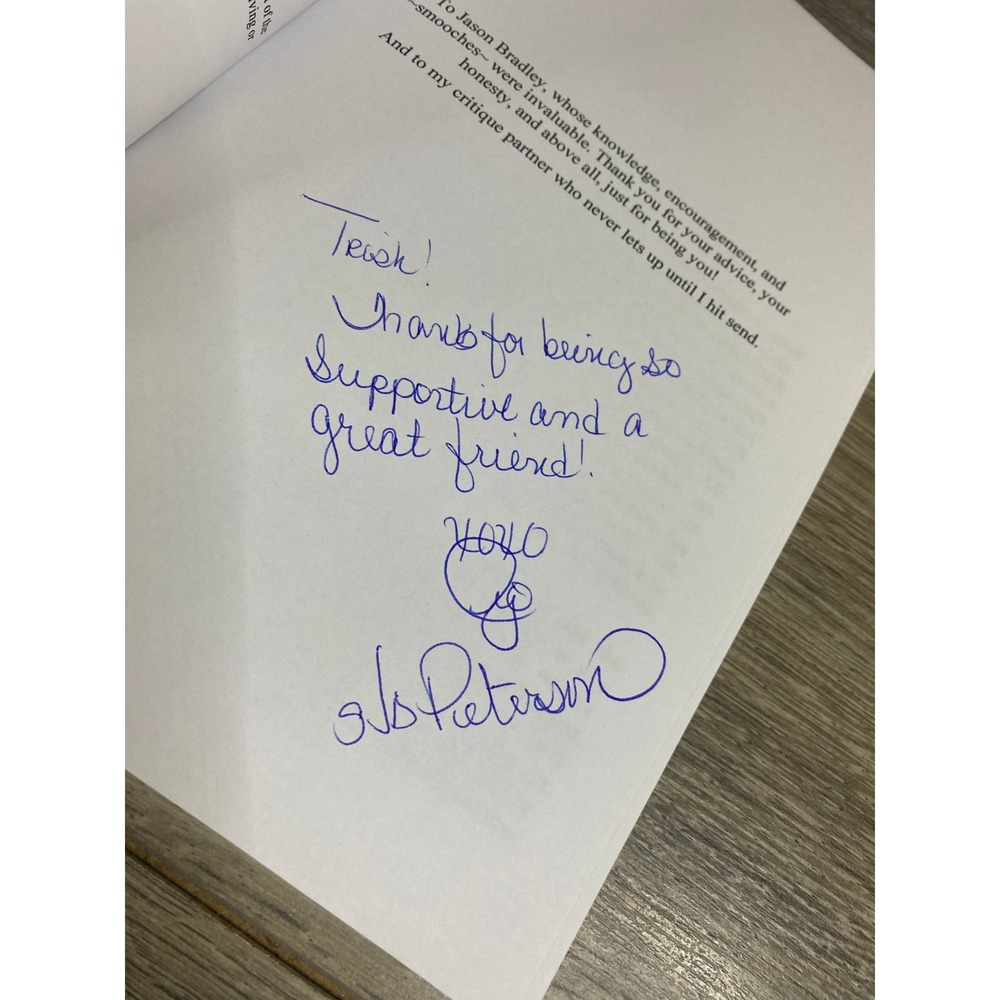 of the
ving or
To Jason Bradley, whose knowledge, encouragement, and
~smooches~ were invaluable. Thank you for your advice, your
honesty, and above all, just for being you!
And to my critique partner who never lets up until I hit send.
Trish!
Thanks for being so
Supportive and a
great friend!
XOXO
Peterson